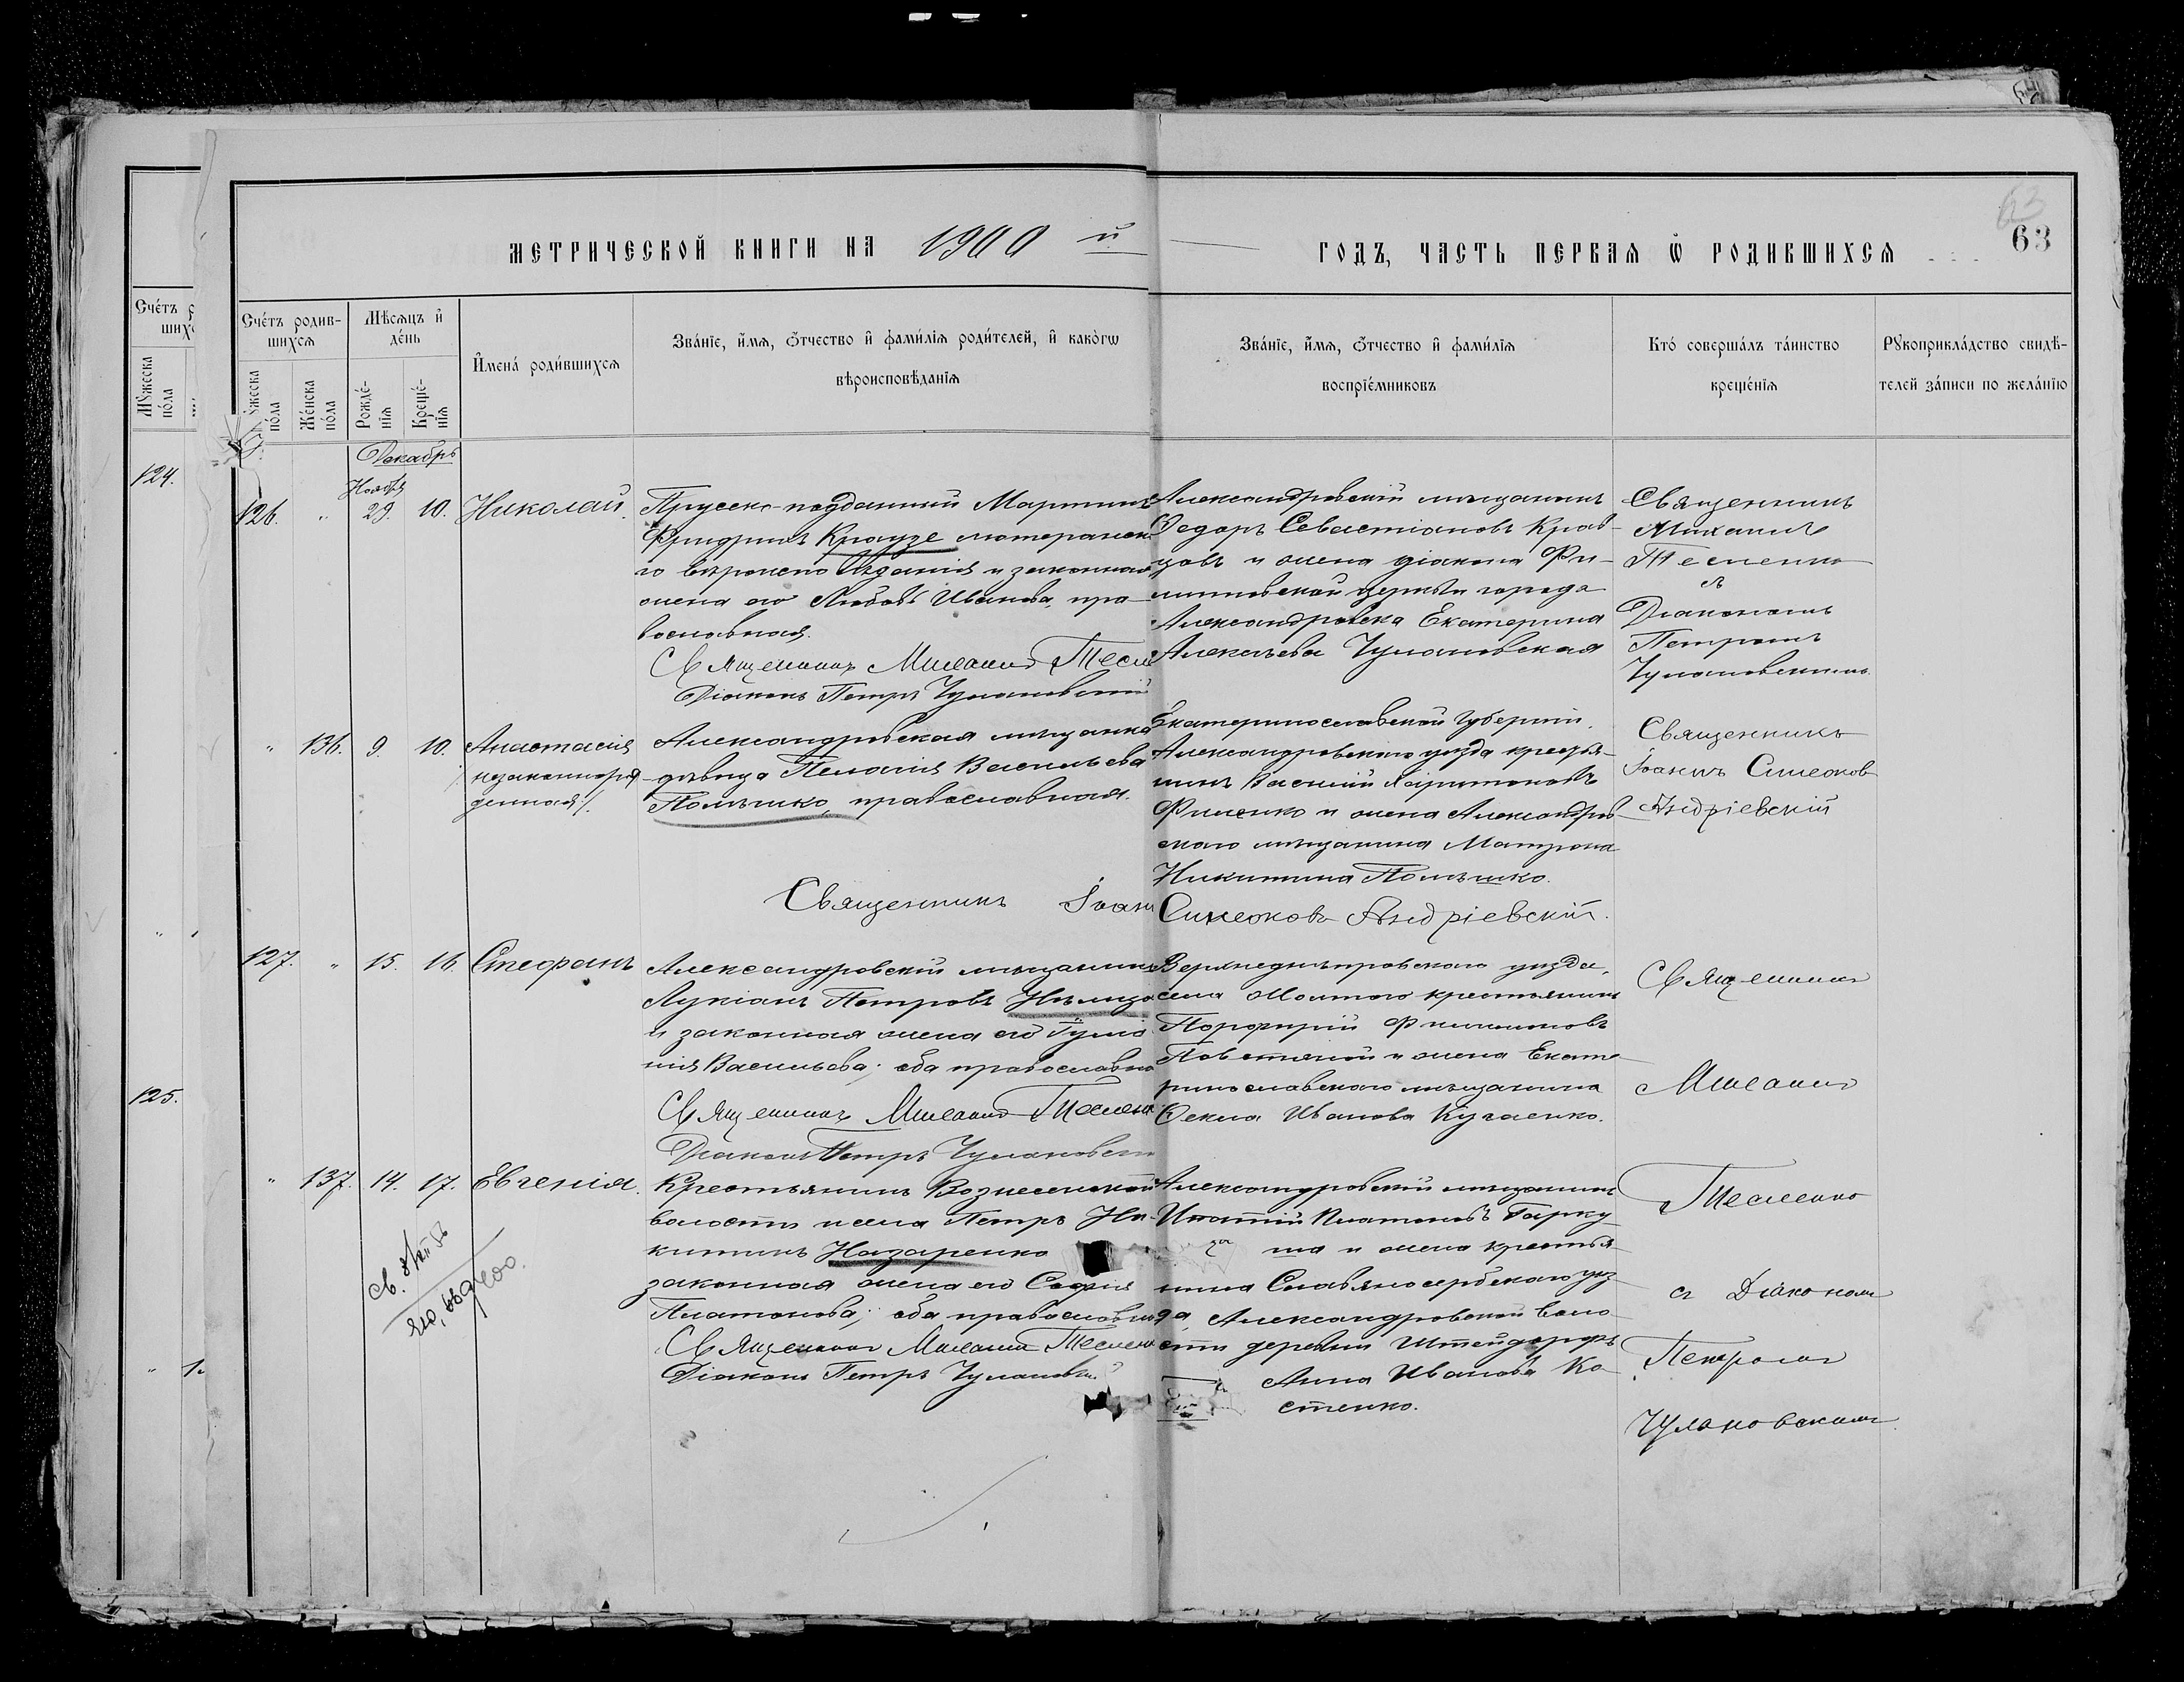 МЕТРИЧЕСКОЙ КНИГИ НА 1900 й
ГОДЪ, ЧАСТЬ ПЕРВАЯ Ѡ РОДИВШИХСЯ
63
63
Счетъ родив-
шихся
Мѣсяцъ и
день
Мужеска
пола
Женска
пола
Рожде-
нія
Креще-
нія
Имена родившихся
Званіе, имя, отчество и фамилія родителей, и какогѡ
вѣроисповѣданія
Званіе, имя, отчество и фамилія
воспріемниковъ
Кто совершалъ таинство
крещенія
Рукоприкладство свидѣ-
телей записи по желанію
Мужеска
пола
124.
125.
Декабрь
Ноября
126. " 29. 10. Николай.
Прусско-подданный Мартинъ
Фридрихъ Краузе лютеранска
го вѣроисповѣданія и законная
жена его Любовь Иванова, пра-
вославная.
Священникъ Михаилъ Тесл
Діаконъ Петръ Чулановскій
Александровскій мѣщанинъ
Ѳедоръ Севастіановъ Крав-
цовъ и жена діакона Фи-
липовской церкви города
Александровска Екатерина
Алексѣева Чулановская
Священникъ
Михаилъ
Тесленко
съ
Діакономъ
Петромъ
Чулановскимъ.
" 136. 9. 10. Анастасія
незаконнорож-
денная
Александровская мѣщанка
дѣвица Пелагія Васильева
Помѣшко, православная.
Священникъ Іоан
Екатеринославской губерніи,
Александровскаго уѣзда крестья-
нинъ Василій Харитоновъ
Фисенко и жена Александров-
скаго мѣщанина Матрона
Никитина Помѣшко.
Симеоновъ Андріевскій.
Священникъ
Іоаннъ Симеонов
Андріевскій
127. " 15. 16. Стефанъ
Александровскій мѣщанинъ
Лукіанъ Петровъ
и законная жена его
нія Васильева; оба православна
Священникъ Михаилъ Теслен
Діаконъ Петръ Чулановскі
Верхнеднѣпровскаго уѣзда,
села крестьянинъ
Порфирій Филимоновъ
и жена Екате
ринославскаго мѣщанина
Ѳекла Иванова Кучаенко.
Священникъ
Михаилъ
Тесленко
съ Діакономъ
Петромъ
Чулановскимъ.
" 137. 14. 17. Евгенія.
Крестьянинъ Вознесенской
волости и села Петръ Ни-
китинъ Назаренко
законная жена его Софія
Платонова; оба православны
Священникъ Михаилъ Теслен
Діаконъ Петръ Чулановскій
Александровскій мѣщанинъ
Игнатій Платоновъ Гарку
ша и жена крестья-
нина Славяносербскаго уѣз
да, Александровской воло
сти деревни Штейндорфъ
Анна Иванова Ко-
стенко.